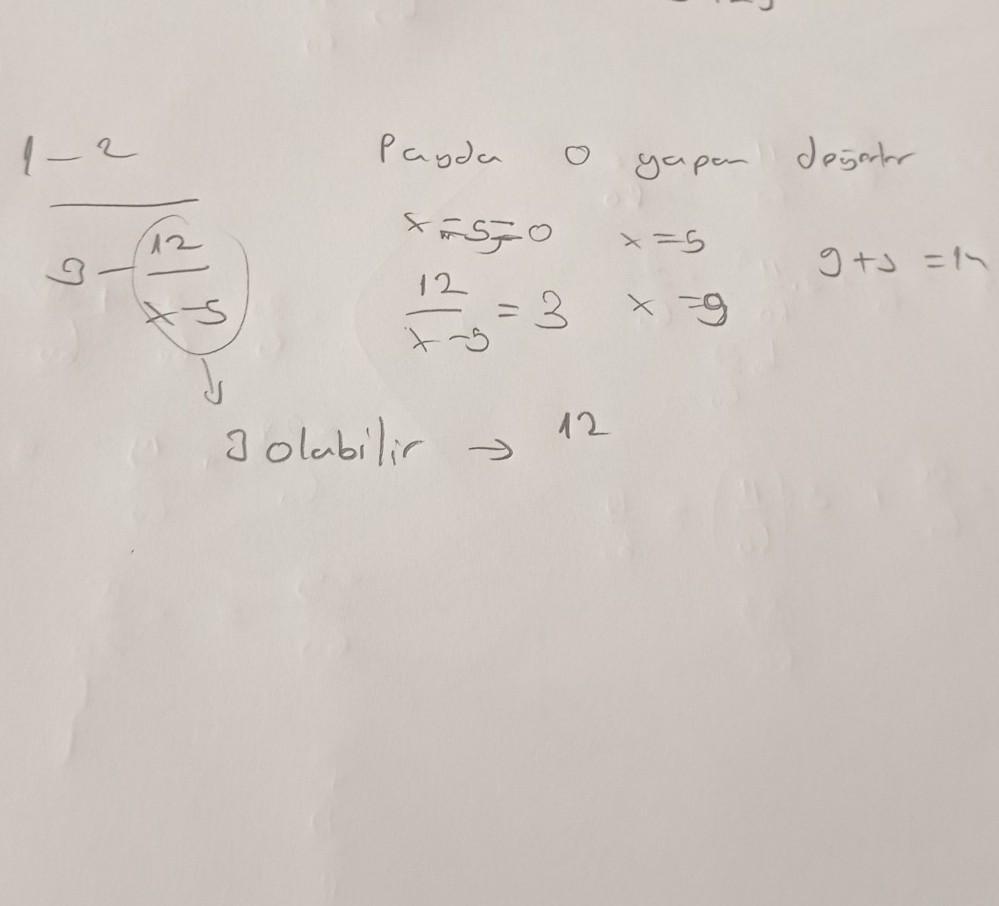 1-2 Payda 0 yapan değerler
x-5=0 x=5 9+5=14
3-12/x-5 12/x-5=3 x=9
3 olabilir → 12